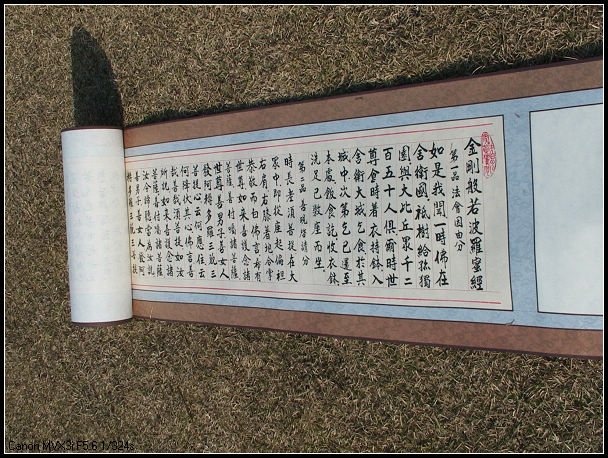 金剛般若波羅蜜經
第一品 法會因由分
如是我聞一時佛在
舍衛國祇樹給孤獨
園與大比丘眾千二
百五十人俱爾時世
尊食時着衣持鉢入
舍衛大城乞食於其
城中次第乞已還至
本處飯食訖收衣鉢
洗足已敷座而坐
第二品 善現啟請分
時長老須菩提在大
眾中即從座起偏袒
右肩右膝着地合掌
恭敬而白佛言希有
世尊如來善護念諸
菩薩善付囑諸菩薩
世尊善男子善女人
發阿耨多羅三藐三
菩提心云何應住云
何降伏其心佛言善
哉善哉須菩提如汝
所說如來善護念諸
菩薩善付囑諸菩薩
汝今諦聽當為汝說
善男子善女人發阿
耨多羅三藐三菩提
Canon F5.6